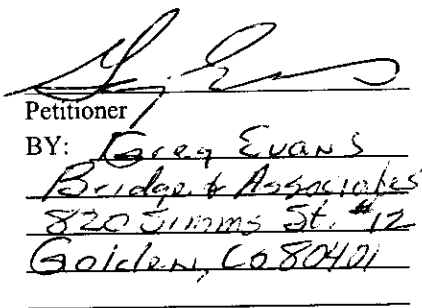 G. Evans
Petitioner
BY: Greg Evans
Bridge & Associates
820 Simms St. #12
Golden, Co 80401